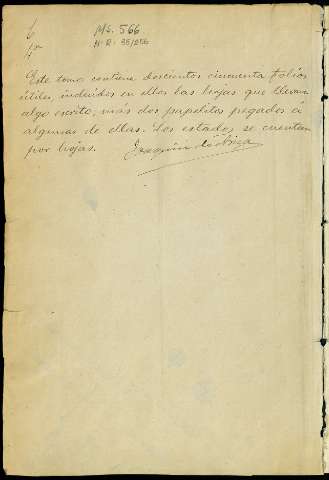 Ms. 566
Este tomo contiene doscientos cincuenta folios
útiles, incluídos en ellos las hojas que llevan
algo escrito; más dos papelitos pegados á
algunas de ellas. Los estados se cuentan
por hojas. Joaquín